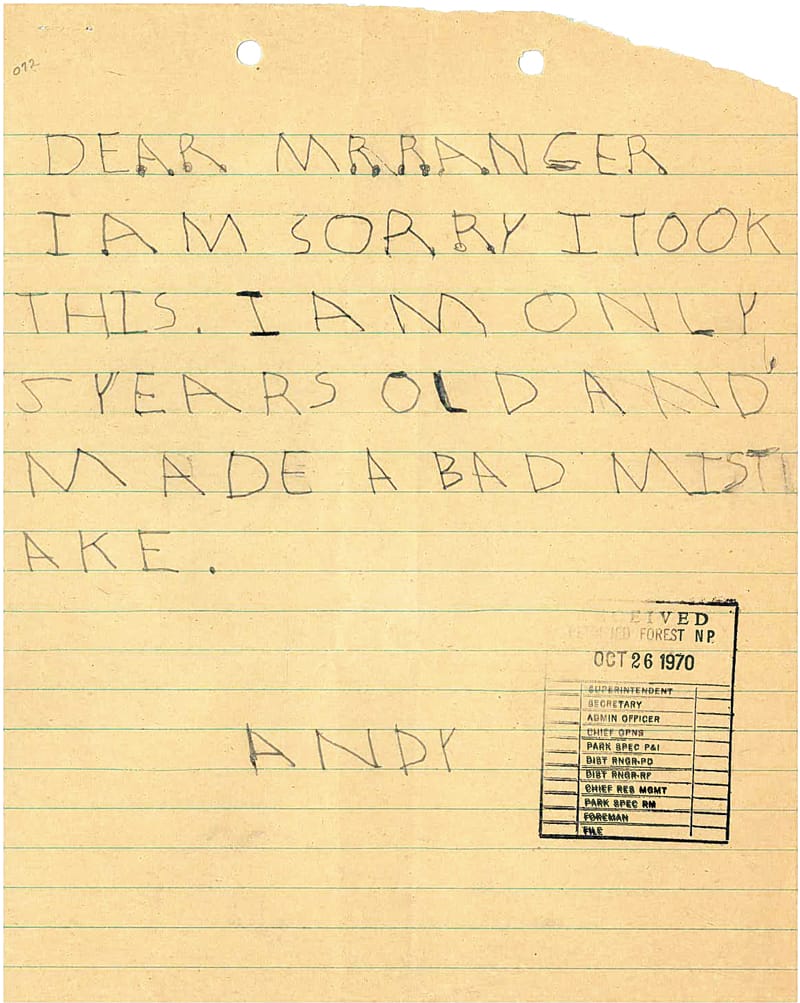 072
DEAR MR. RANGER
I AM SORRY I TOOK
THIS. I AM ONLY
5 YEARS OLD AND
MADE A BAD MIST
AKE.
ANDY
RECEIVED
PETRIFIED FOREST NP
OCT 26 1970
SUPERINTENDENT
SECRETARY
ADMIN OFFICER
CHIEF OPNS
PARK SPEC P&I
DIST RNGR-PD
DIST RNGR-RF
CHIEF RES MGMT
PARK SPEC RM
FOREMAN
FILE